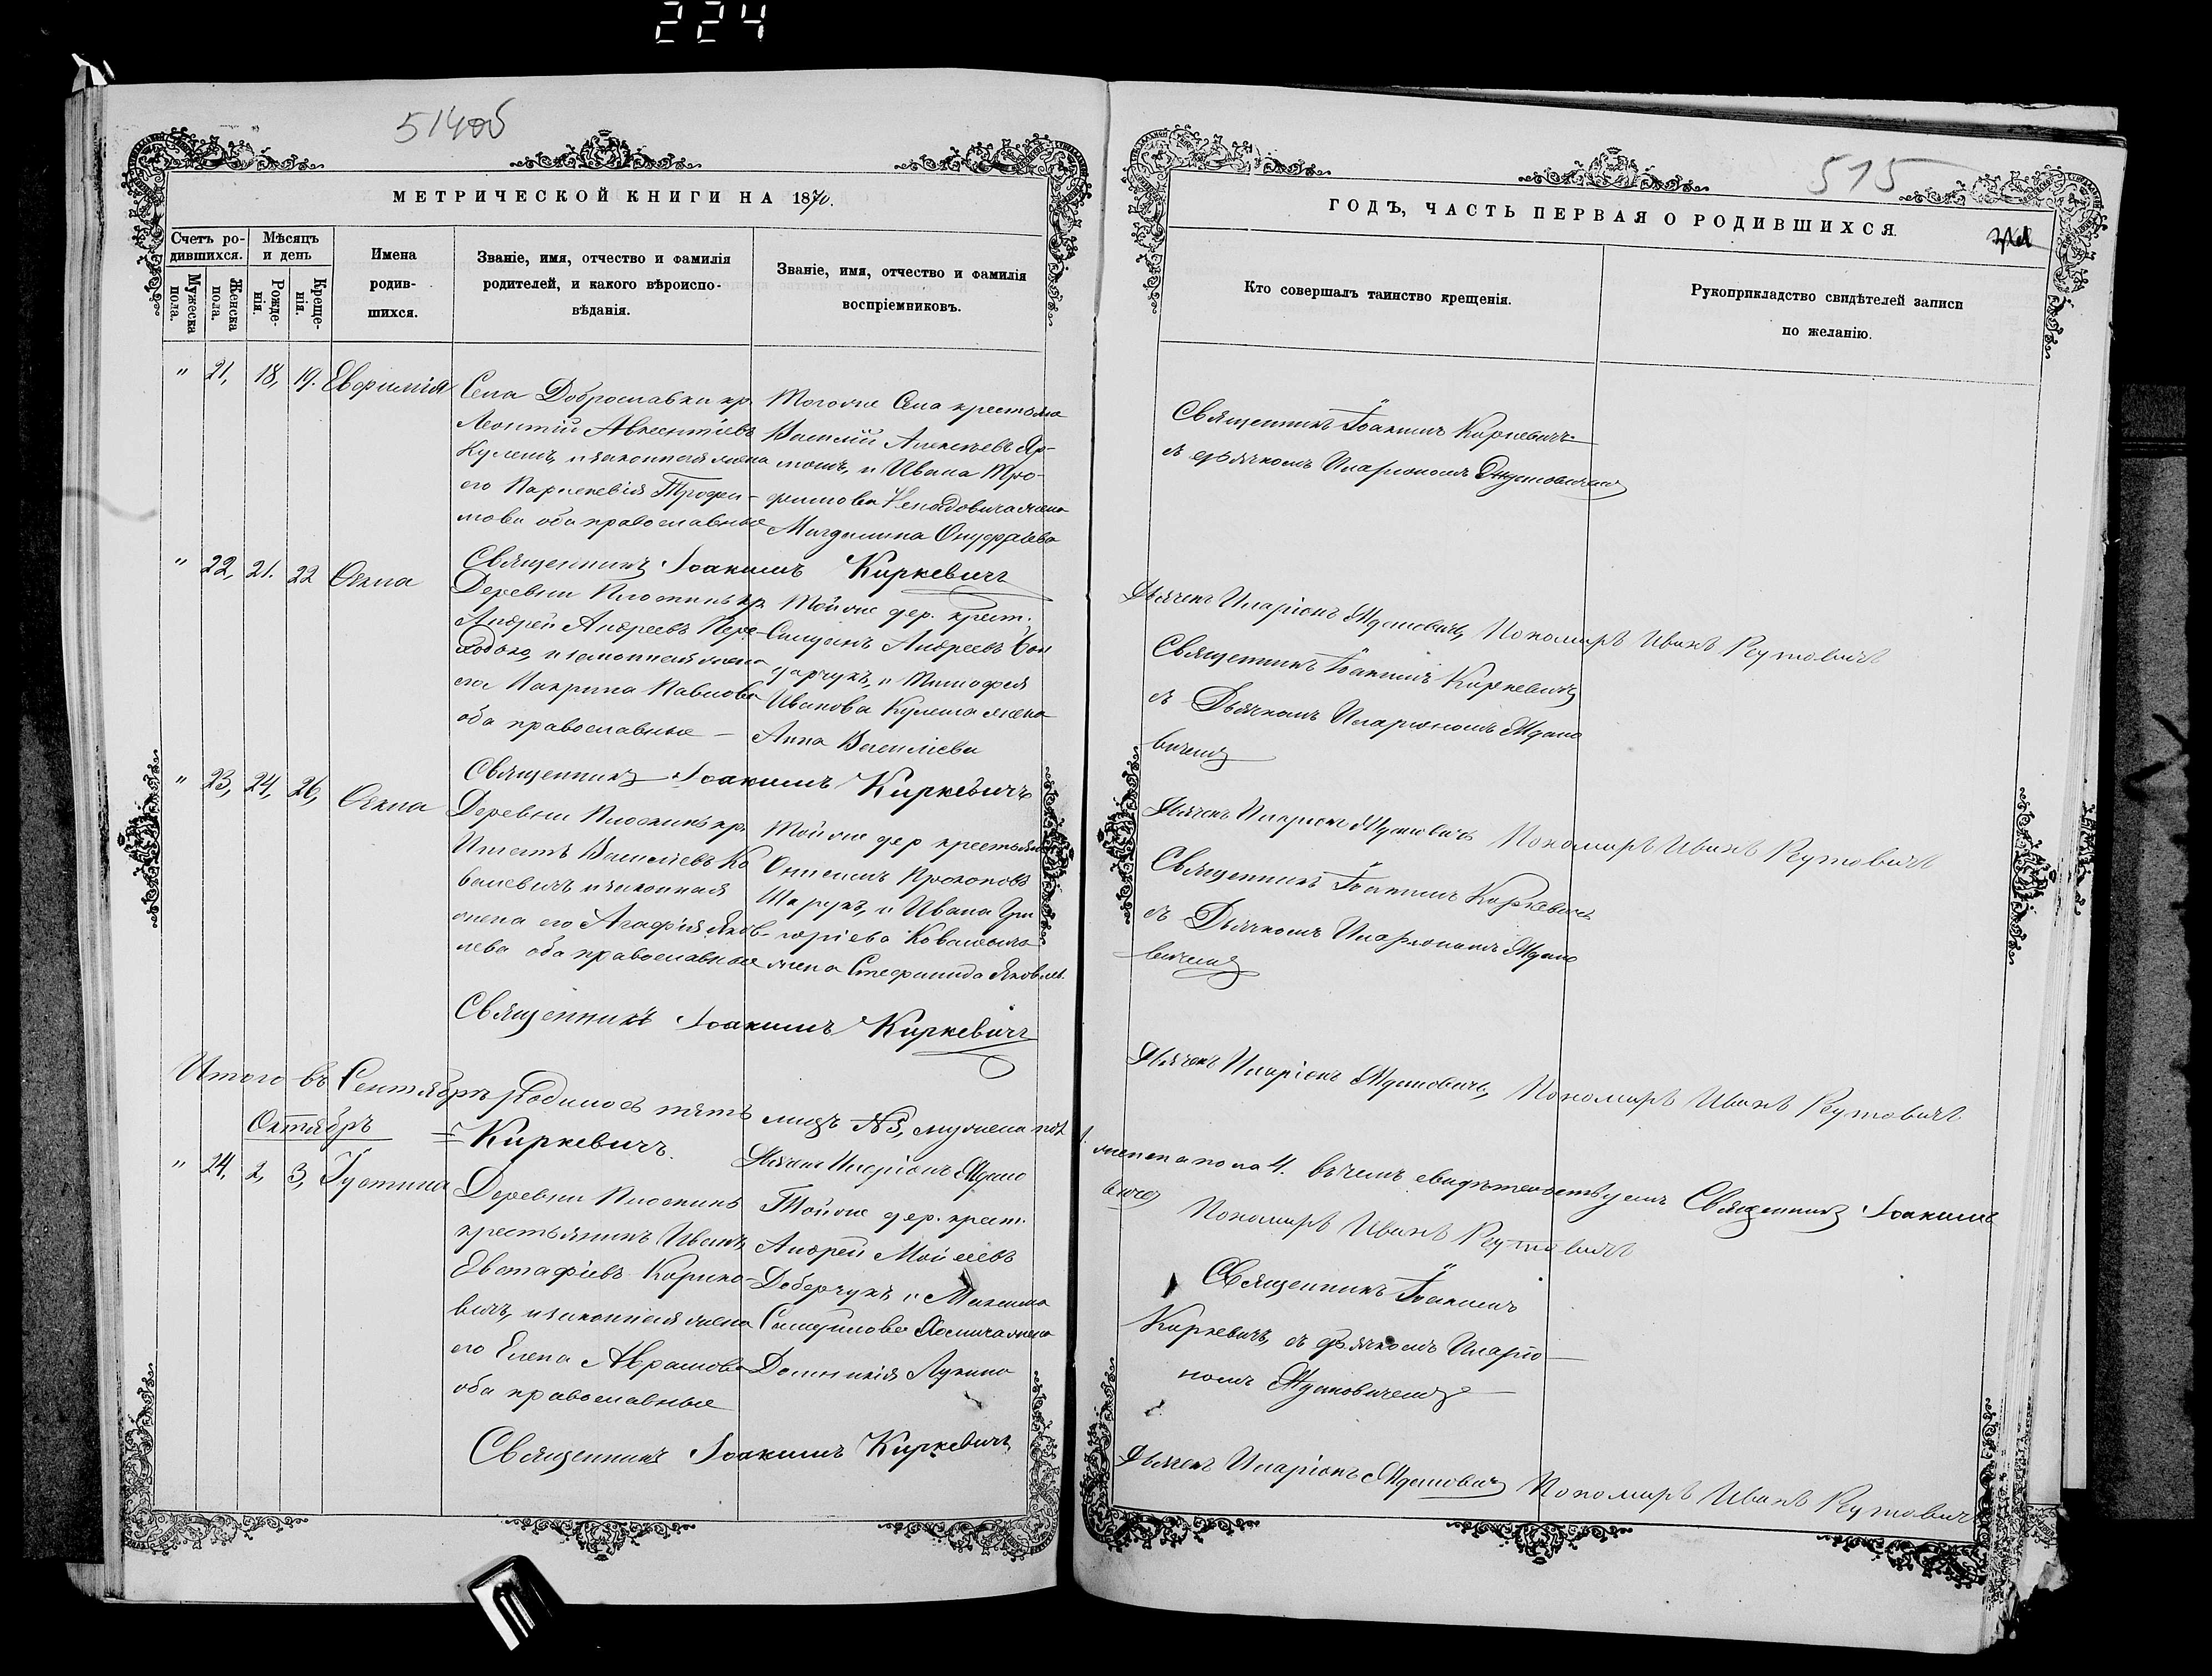 224
514об
МЕТРИЧЕСКОЙ КНИГИ НА 1870.
Счетъ ро-
дившихся.
Мужеска
пола.
Женска
пола.
Мѣсяцъ
и день
Рожде-
нія.
Креще-
нія.
Имена
родив-
шихся.
Званіе, имя, отчество и фамилія
родителей, и какого вѣроиспо-
вѣданія.
Званіе, имя, отчество и фамилія
воспріемниковъ.
" 21, 18, 19. Евфимія
Села Доброславки кр.
Леонтій Авксентіевъ
Кулешъ, и законная жена
его Параскевія Трофи-
мова оба православные
Тогоже Села крестьяна
Василій Алексѣевъ Яр-
мошъ, и Ивана Тро-
фимова жена
Магдалина Онуфріева
Священникъ Іоакимъ Киркевичъ
" 22, 21. 22 Өекла
Деревни Плоскинь кр.
Андрей Андреевъ Пере-
ходько, и законная жена
его Макрина Павлова
оба православные —
Тойже дер. крест.
Андреевъ Бон
дарчукъ, и Тимофея
Иванова Кулеша жена
Анна Василіева
Священникъ Іоакимъ Киркевичъ
" 23, 24, 26, Өекла
Деревни Плоскинь кр.
Игнатъ Василіевъ Ко
валевичъ и законная
жена его Агафія Яков-
лева оба православные
Тойже дер крестьяне
Онисимъ Прокоповъ
и Ивана Гри
горіева Ковалевича
жена Стефанида Яковлев.
Священникъ Іоакимъ Киркевичъ
Итого въ Сентябрѣ Родилось пять лицъ № 5, мужеска пол
Октябрь
Киркевичъ.
Дьячекъ Иларіонъ Ждано
" 24, 2, 3, Іустина
Деревни Плоскинь
крестьянинъ Иванъ
Евстафіевъ Корнко-
вичъ, и законная жена
его Елена Аврамова
оба православные
Тойже дер. крест.
Андрей Мойсеевъ
Деберчукъ и Максима
Самуилова Хомича жена
Домникія Лукина
Священникъ Іоакимъ Киркевичъ
515
ГОДЪ, ЧАСТЬ ПЕРВАЯ О РОДИВШИХСЯ.
Кто совершалъ таинство крещенія.
Рукоприкладство свидѣтелей записи
по желанію.
Священникъ Іоакимъ Киркевичъ
съ дьячкомъ Иларіономъ Ждановичемъ
Дьячекъ Иларіонъ Ждановичъ, Пономарь Иванъ Реутовичъ
Священникъ Іоакимъ Киркевичъ
съ Дьячкомъ Иларіономъ Ждано
вичемъ
Дьячекъ Иларіонъ Ждановичъ Пономарь Иванъ Реутовичъ
Священникъ Іоакимъ Киркевичъ
съ Дьячкомъ Иларіономъ Ждано
вичемъ
Дьячекъ Иларіонъ Ждановичъ, Пономарь Иванъ Реутовичъ
1. женска пола 4. въ чемъ свидѣтельствуемъ Священникъ Іоакимъ
вичъ Пономарь Иванъ Реутовичъ
Священникъ Іоакимъ
Киркевичъ, съ дьячкомъ Иларіо-
номъ Ждановичемъ
Дьячекъ Иларіонъ Ждановичъ Пономарь Иванъ Реутовичъ